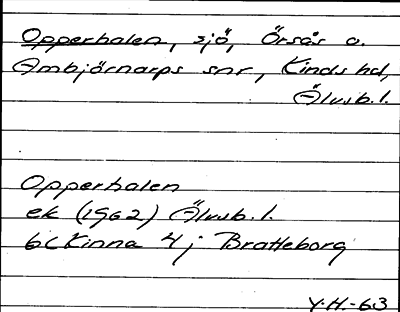 Opperhalen, sjö, Örsås o.
Ambjörnarps snr, Kinds hd,
Älvsb. l.
Opperhalen
ek (1962) Älvsb. l.
6c Kinna 4 j Bratteborg
Y.H.-63